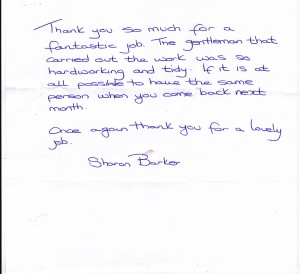 Thank you so much for a
fantastic job. The gentleman that
carried out the work was so
hardworking and tidy. If it is at
all possible to have the same
person when you come back next
month.
Once again thank you for a lovely
job.
Sharon Barker